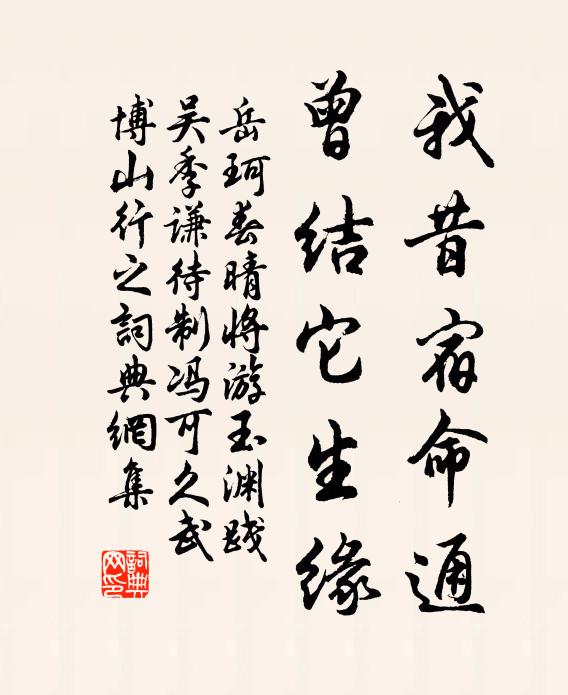 我昔宿命通
曾结它生缘
岳珂春晴将游玉渊践
吴季谦待制冯可久武
博山行之詞典網集
詞典
网印